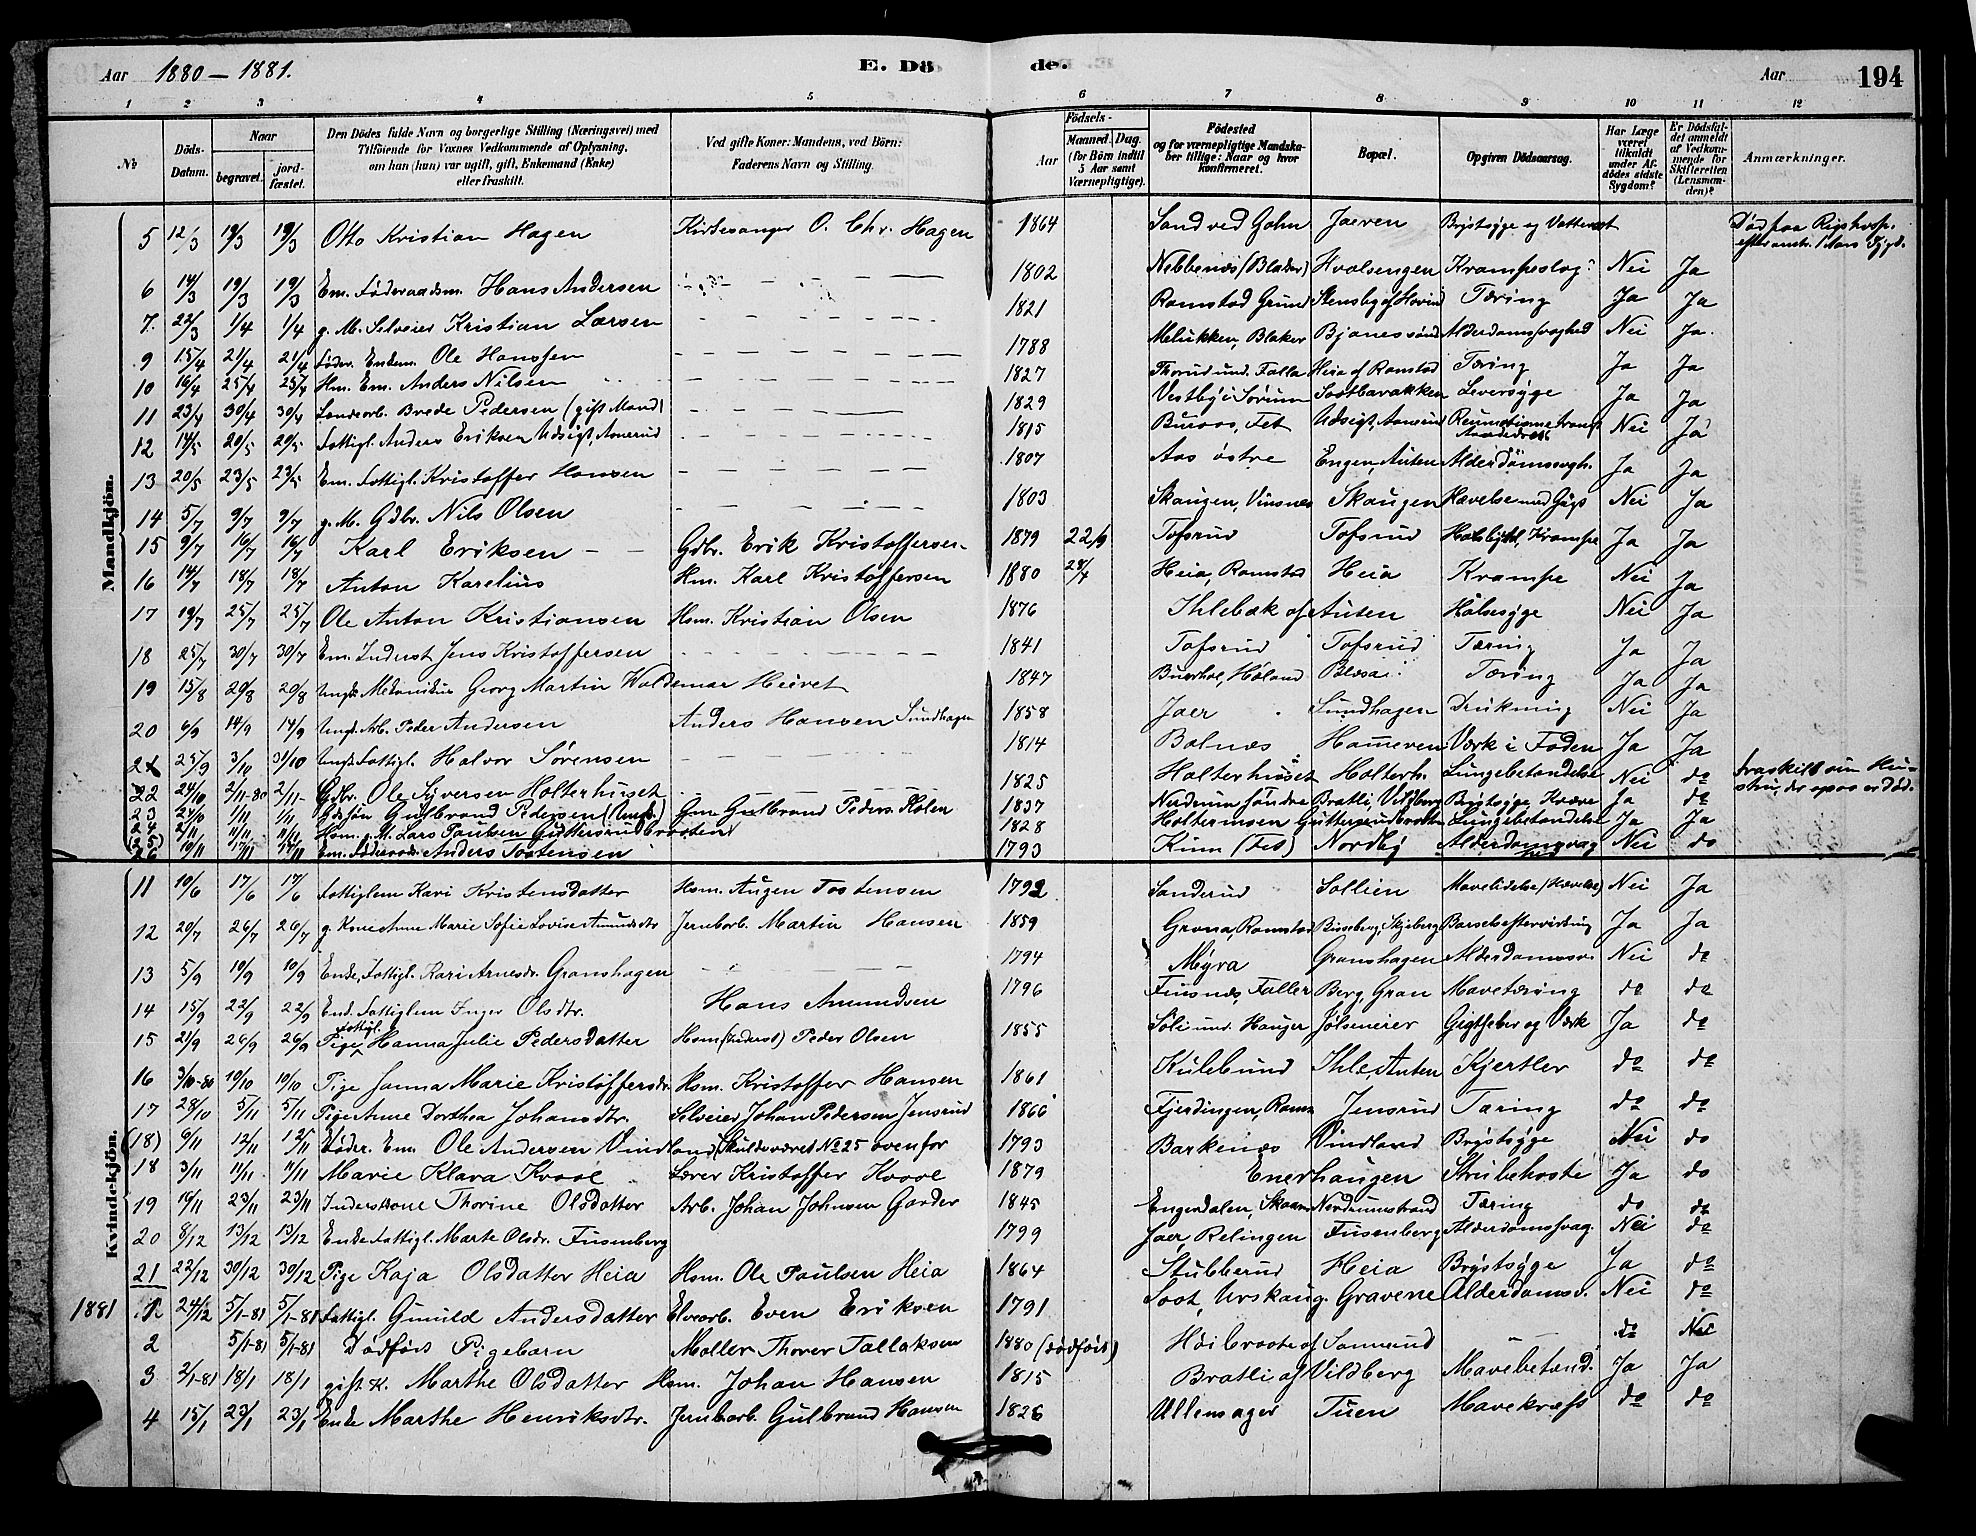 Aar 1880 - 1881. E. Dö de. Aar 194
1 2 3 4 5 6 7 8 9 10 11 12
№ Döds-Datum. Naar begravet. jordfæstet. Den Dödes fulde Navn og borgerlige Stilling (Næringsvei) med Tilföiende for Voxnes Vedkommende af Oplysning, om han (hun) var ugift, gift, Enkemand (Enke) eller fraskilt. Ved gifte Koner: Mandens, ved Börn: Faderens Navn og Stilling. Aar Födsels- Maaned. Dag. (for Börn indtil 5 Aar samt Værnepligtige). Födested og for værnepligtige Mandskaber tillige: Naar og hvor konfirmeret. Bopæl. Opgiven Dödsaarsag. Har Læge været tilkaldt under Afdödes sidste Sygdom? Er Dödsfaldet anmeldt af Vedkommende for Skifteretten (Lensmanden)? Anmærkninger.
Mandkjön.
5 12/3 19/3 19/3 Otto Kristian Hagen Kirkesanger O. Chr. Hagen 1864 Sand ved Gahn Jaeren Brystsyge og Vattersot Død paa Rigshosp.
6 14/3 19/3 19/3 Em. Føderaadsm. Hans Andersen 1802 Nebbenæs (Blaker) Hvalsengen Krampeslag Nei Ja
7. 22/3 1/4 1/4 g. M. Selveier Kristian Larsen 1821 Ramstad Grund Stensby af Hovind Tæring Ja Ja
9 15/4 21/4 21/4 Føder. Enkem. Ole Hanssen 1788 Melukken, Blaker Alderdomssvaghed Nei Ja.
10 16/4 25/4 25/4 Hm. Em. Anders Nilsen 1827 Thorud und. Falla Heia af Ramstad Tæring Ja Ja
11 23/4 30/4 30/4 Landearb. Brede Pedersen (gift Mand) 1829 Vestby i Sørum Sootbarakken Leversyge Ja Ja
12 14/5 20/5 20/5 Fattigl. Anders Eriksen Udsigt, Aanerud 1815 Buraas, Fet Udsigt, Aanerud Nei Ja
13 20/5 23/5 23/5 Em. Fattigl. Kristoffer Hansen 1807 Aas østre Engen, Auten Alderdomssvagh. Ja Ja
14 5/7 9/7 9/7 g. M. Gdbr. Nils Olsen 1803 Skaugen, Vinsnes Skaugen Hævelse med Gigt Nei Ja
15 9/7 16/7 16/7 Karl Eriksen Gdbr. Erik Kristoffersen 1879 22/6 Tofsrud Tofsrud Krampe Ja Ja
16 14/7 18/7 18/7 Anton Karelius Hm. Karl Kristoffersen 1880 28/4 Heia, Ramstad Heia Krampe Nei Ja
17 19/7 25/7 25/7 Ole Anton Kristiansen Hsm. Kristian Olsen 1876 Ihlebæk af Auten Halsesyge Nei Ja
18 25/7 30/7 30/7 Em. Inderst Jens Kristoffersen 1841 Tofsrud Tofsrud Tæring Ja Ja
19 15/8 20/8 20/8 Ungk. Mekanikus Georg Martin Waldemar Hievet 1847 Buerhol, Høland Blæsa Tæring Ja Ja
20 6/9 14/9 14/9 Ungk. Arb. Peder Andersen Anders Hansen Sundhagen 1858 Jaer Sundhagen Drukning Nei Ja
21 25/9 3/10 31/10 Ungk. Fattigl. Halvor Sørensen 1814 Balnæs Hameren Værk i Foden Ja Ja
22 24/10 2/11-80 2/11- Gdbr. Ole Syversen Holterhuset 1825 Holterhuset Holterh. Lungebetændelse Nei do Fraskilt sin Hustru, der ogsaa er død.
23 1/11 1/11 Gdrsøn Gulbrand Pedersen (Ungk.) Gm Gulbrand Peders. Holen 1837 Nerdrum søndre Bratli, Vildberg Brystsyge Ja do
24 2/11 11/11 11/11 Hsm. g. M. Lars Paulsen Guttersrudbraaten 1828 Holtermoen Guttersrudbraaten Lungebetændelse Ja Ja
26 10/11 17/11 Em. Føderaad. Anders Tostensen 1793 Kinn (Fet) Nordby Alderdomssvaghed Nei do
Kvindekjön.
11 10/6 17/6 17/6 Fattiglem Kari Kristensdatter Hsm. Augen Tostensen 1792 Sanderud Sollien Mavelidelse (Hævelse) Nei Ja
12 20/7 26/7 26/7 g. Kone Anne Marie Sofie Lovise Amundsdtr Jernbarb. Martin Hansen 1859 Grona, Ramstad Bisseberg, Skjeberg Barselseftervirkning Ja Ja
13 5/9 10/9 10/9 Enke, Fattigl. Kari Arnesdr. Granshagen 1794 Myra Granshagen Alderdomssv. Nei do
14 15/9 22/9 22/9 Enk. Fattiglem Inger Olsdtr. Hans Amundsen 1796 Finsnæs, Faller Berg, Gran Mavetæring do do
15 21/9 26/9 26/9 Fattigl. Pige Hanna Julie Pedersdatter Hsm (Inderst) Peder Olsen 1855 Soli und. Hauger Jølseneier Gigtfeber og Værk Ja do
16 3/10-80 10/10 10/10 Pige Janna Marie Kristoffersdr. Hsm. Kristoffer Hansen 1861 Kulebund Ihle, Auten Kjertler do do
17 28/10 5/11 5/11 Pige Anne Dorthea Johansdtr. Selveier Johan Pedersen Jensrud 1866 Fjerdingen, Rams Jensrud Tæring do do
(18) 6/11 12/11 12/11 Føder. Em. Ole Andersen Vindland (Skulde været № 25 ovenfor 1793 Barkenæs Vindland Brystsyge Nei do
18 3/11 11/11 11/11 Marie Klara Kvaal Lærer Kristoffer Kvaal 1879 Enerhaugen Strubehoste Ja do
19 19/11 23/11 23/11 Inderskone Thorine Olsdatter Arb. Johan Johnsen Garder 1845 Engerdalen, Skaan Nerdrumstrand Tæring do do
20 8/12 13/12 13/12 Enke Fattigl. Marte Olsdr. Fusenberg 1799 Jaer, Relingen Fusenberg Alderdomssvag. Nei do
21 22/12 30/12 30/12 Pige Kaja Olsdatter Heia Hsm. Ole Paulsen Heia 1864 Stubberud Heia Brystsyge Ja do
1881 1. 24/12 5/1-81 5/1-81 Fattigl. Gunild Andersdatter Elvearb. Even Eriksen 1791 Soot, Urskaug. Gravene Alderdomssv. Nei do
2 5/1-81 5/1-81 Dødfødt Pigebarn Møller Thorer Tallaksen 1880 (dødfødt) Høibraate af Sannerud do Nei
3 2/1-81 18/1 18/1 gift. K. Marthe Olsdatter Hsm. Johan Hansen 1815 Bratli af Vildberg Mavebetænd. Ja Ja
4 15/1 23/1 23/1 Enke Marthe Henriksdtr. Jernbarb. Gulbrand Hansen 1826 Ullensager Tuen Mavekræft do do